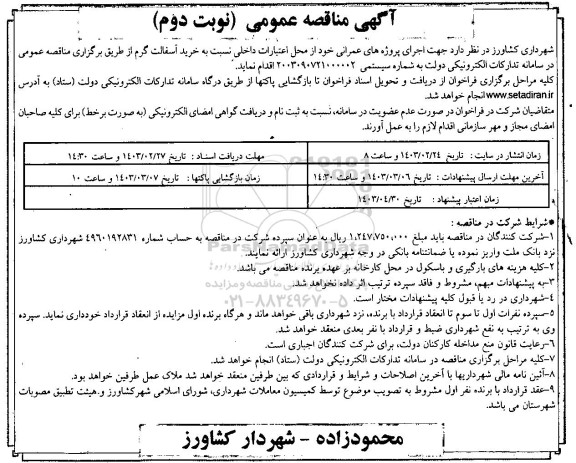 آگهی مناقصه عمومی (نوبت دوم)
شهرداری کشاورز در نظر دارد جهت اجرای پروژه های عمرانی خود از محل اعتبارات داخلی نسبت به خرید آسفالت گرم از طریق برگزاری مناقصه عمومی
در سامانه تدارکات الکترونیکی دولت به شماره سیستمی ۲۰۰۳۰۹۰۷۲۱۰۰۰۰۰۲ اقدام نماید.
کلیه مراحل برگزاری فراخوان از دریافت و تحویل اسناد فراخوان تا بازگشایی پاکتها از طریق درگاه سامانه تدارکات الکترونیکی دولت (ستاد) به آدرس
www.setadiran.ir انجام خواهد شد.
متقاضیان شرکت در فراخوان در صورت عدم عضویت در سامانه، نسبت به ثبت نام و دریافت گواهی امضای الکترونیکی (به صورت برخط) برای کلیه صاحبان
امضای مجاز و مهر سازمانی اقدام لازم را به عمل آورند.
زمان انتشار در سایت : تاریخ ۱۴۰۳/۰۲/۲۴ و ساعت ۸
مهلت دریافت اسناد : تاریخ ۱۴۰۳/۰۲/۲۷ و ساعت ۱۴:۳۰
آخرین مهلت ارسال پیشنهادات : تاریخ ۱۴۰۳/۰۳/۰۶ و ساعت ۱۴:۳۰
زمان بازگشایی پاکتها : تاریخ ۱۴۰۳/۰۳/۰۷ و ساعت ۱۰
زمان اعتبار پیشنهاد : تاریخ ۱۴۰۳/۰۴/۳۰
●شرایط شرکت در مناقصه :
۱-شرکت کنندگان در مناقصه باید مبلغ ۱،۲۴۷،۷۵۰،۰۰۰ ریال به عنوان سپرده شرکت در مناقصه به حساب شماره ۴۹۶۰۱۹۲۸۳۱ شهرداری کشاورز
نزد بانک ملت واریز نموده یا ضمانتنامه بانکی در وجه شهرداری کشاورز ارائه نمایند.
۲-کلیه هزینه های بارگیری و باسکول در محل کارخانه بر عهده برنده مناقصه می باشد.
۳-به پیشنهادات مبهم، مشروط و فاقد سپرده ترتیب اثر داده نخواهد شد.
۴-شهرداری در رد یا قبول کلیه پیشنهادات مختار است.
۵-سپرده نفرات اول تا سوم تا انعقاد قرارداد با برنده، نزد شهرداری باقی خواهد ماند و هرگاه برنده اول مزایده از انعقاد قرارداد خودداری نماید. سپرده
وی به ترتیب به نفع شهرداری ضبط و قرارداد با نفر بعدی منعقد خواهد شد.
۶-رعایت قانون منع مداخله کارکنان دولت، برای شرکت کنندگان اجباری است.
۷-کلیه مراحل برگزاری مناقصه در سامانه تدارکات الکترونیکی دولت (ستاد) انجام خواهد شد.
۸-آئین نامه مالی شهرداریها با آخرین اصلاحات و شرایط و قراردادی که بین طرفین منعقد خواهد شد ملاک عمل طرفین خواهد بود.
۹-عقد قرارداد با برنده نفر اول مشروط به تصویب موضوع توسط کمیسیون معاملات شهرداری، شورای اسلامی شهرکشاورز و.هیئت تطبیق مصوبات
شهرستان می باشد.
محمودزاده - شهردار کشاورز
ParsNamadData
۰۲۱-۸۸۳۴۹۶۷۰-۵